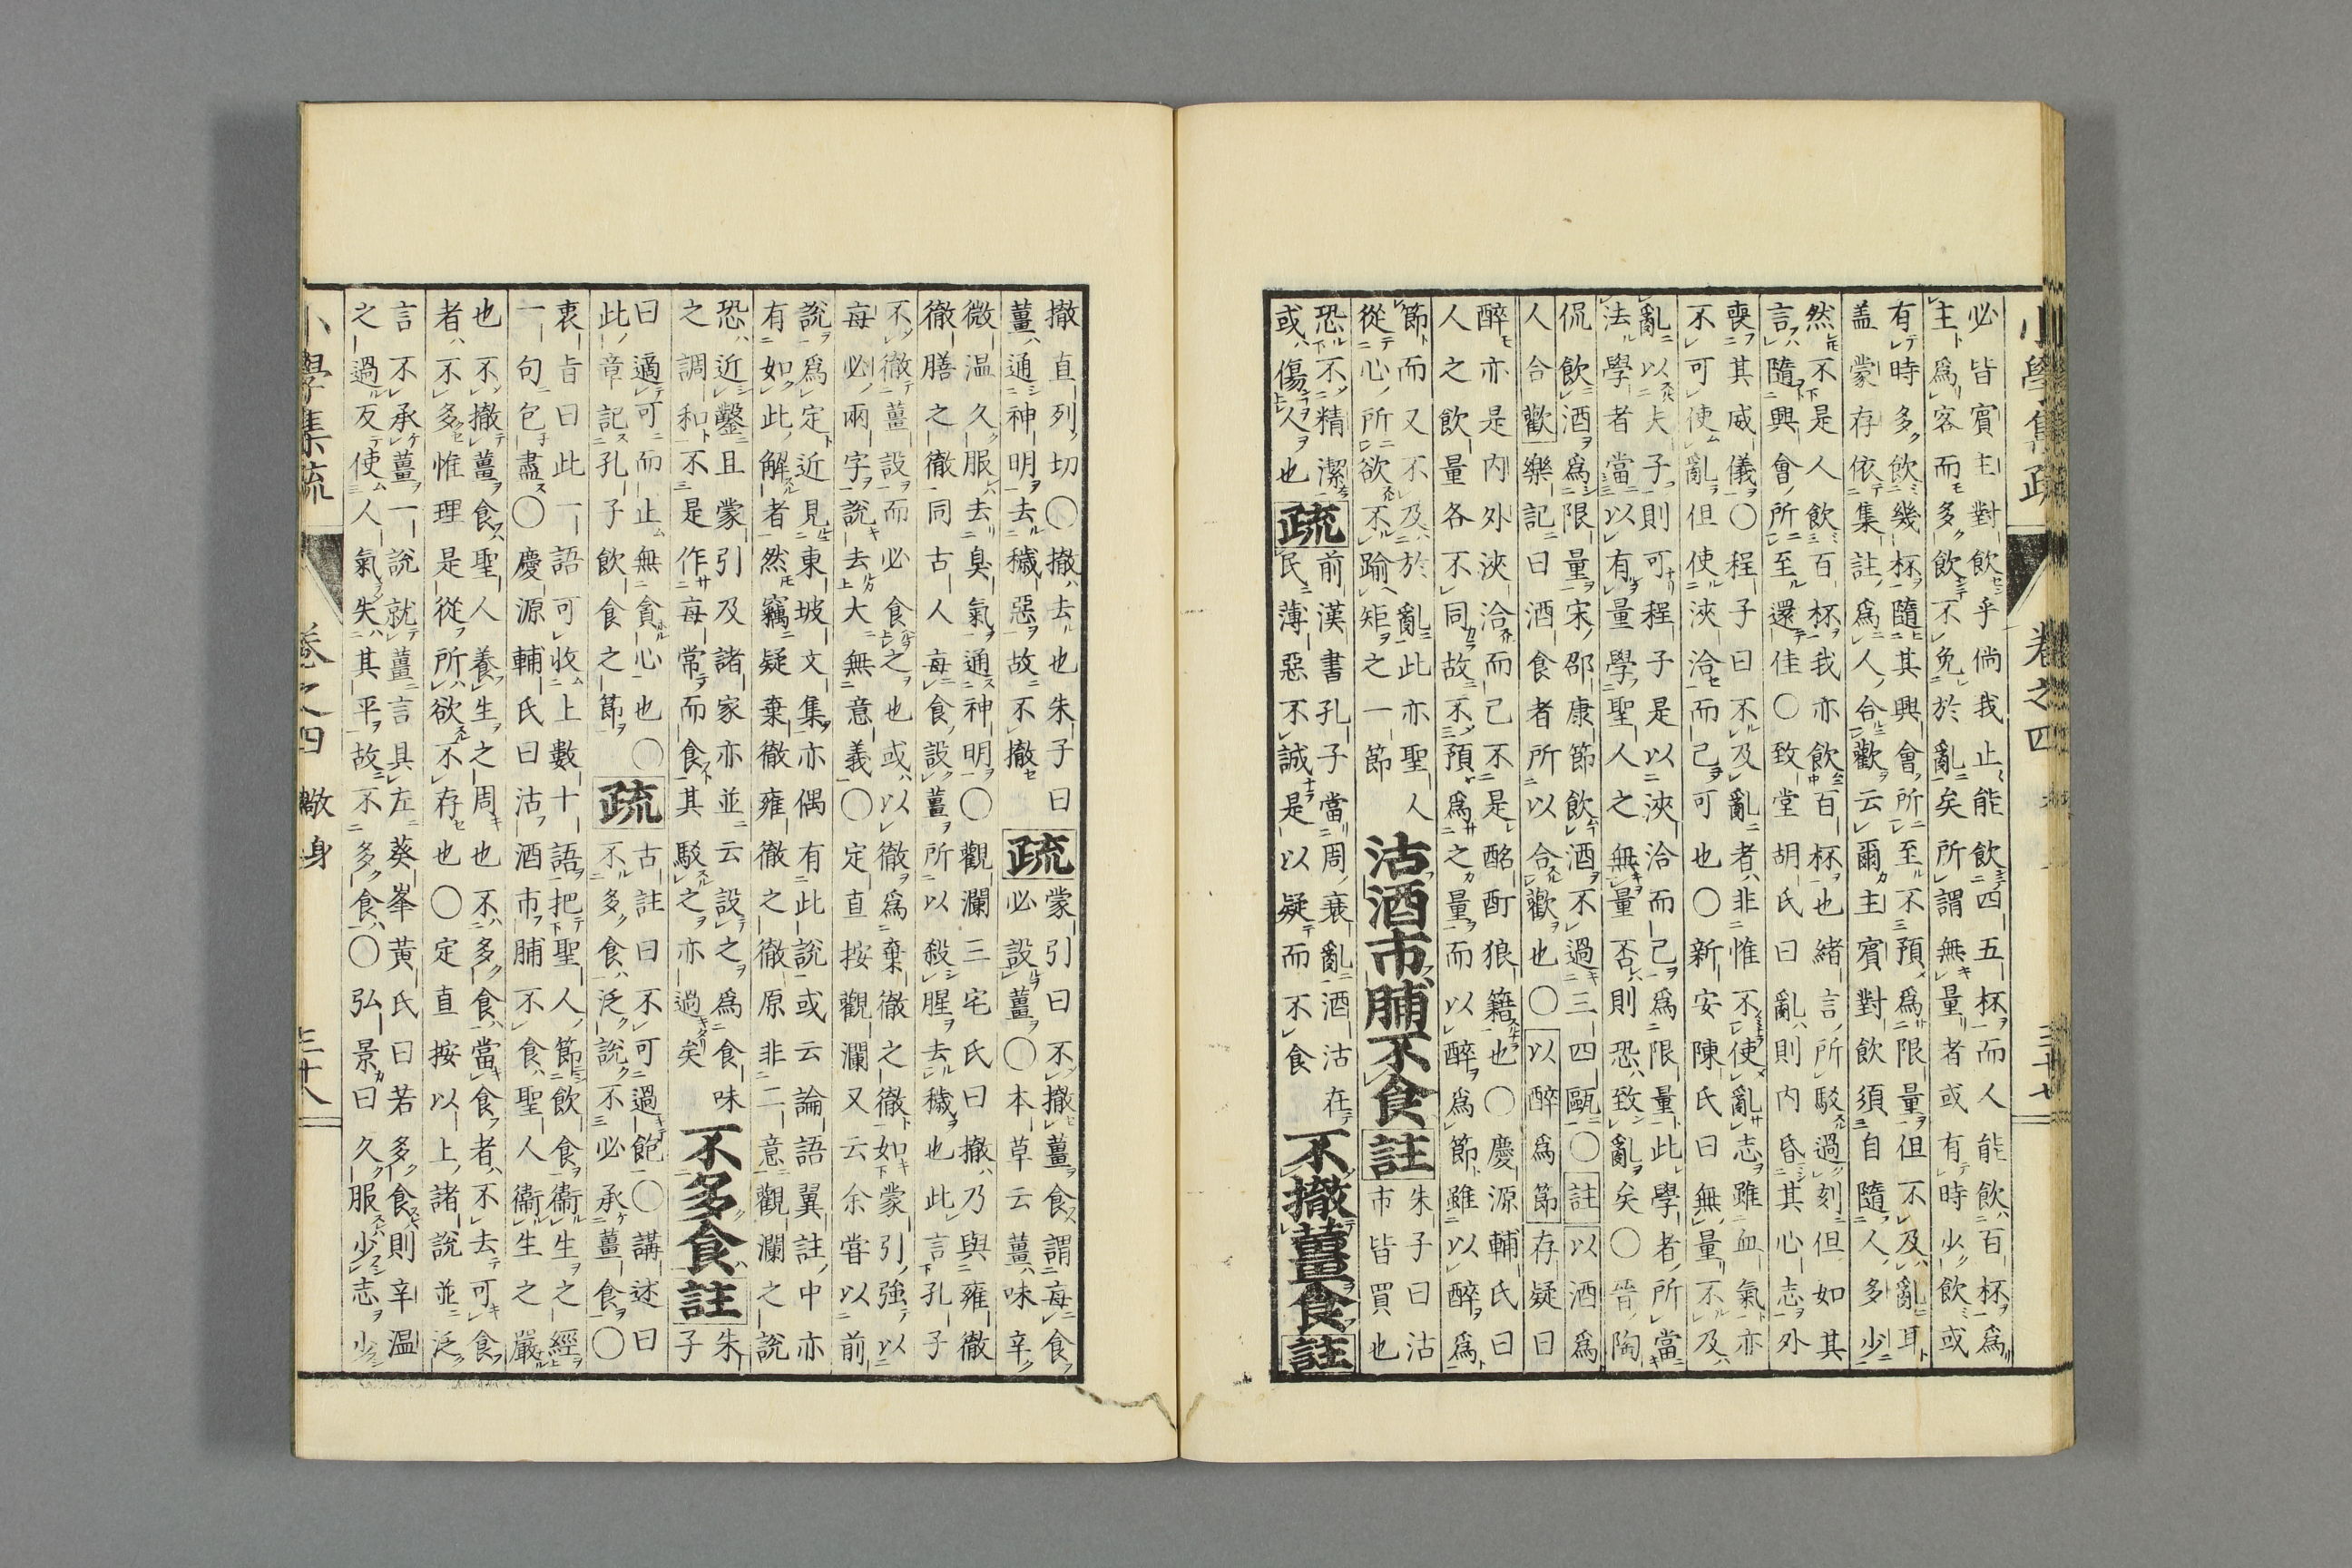 小學集疏 卷之四 三十七
必皆賓主對飲乎倘我止能飲四五杯而人能飲百杯爲
主爲客而多飲不免於亂矣所謂無量者或有時少飲或
有時多飲幾杯隨其興會所至不預爲限量但不及亂耳
盖蒙存依集註爲人合歡云爾主賓對飲須自隨人多少
然不是人飲百杯我亦飲百杯也緒言所駁過刻但如其
言隨興會所至還佳○致堂胡氏曰亂則內昏其心志外
喪其威儀○程子曰不及亂者非惟不使亂志雖血氣亦
不可使亂但使浹洽而已可也○新安陳氏曰無量不及
亂以夫子則可程子是以浹洽而已爲限量此學者所當
法學者當以有量學聖人之無量否則恐致亂矣○晉陶
侃飲酒爲限量宋邵康節飲酒不過三四甌○註以酒爲
人合歡樂記曰酒食者所以合歡也○以醉爲節存疑曰
醉亦是内外浹洽而已不是酩酊狼籍也○慶源輔氏曰
人之飲量各不同故不預爲之量而以醉爲節雖以醉爲
節而又不及於亂此亦聖人
從心所欲不踰矩之一節
沽酒市脯不食註
朱子曰沽
市皆買也
恐不精潔
或傷人也
疏
前漢書孔子當周衰亂酒沽在
民薄惡不誠是以疑而不食
不撤薑食註
撤直列切○撤去也朱子曰
薑通神明去穢惡故不撤
疏
蒙引曰不撤薑食謂每食
必設薑○本草云薑味辛
微温久服去臭氣通神明○觀瀾三宅氏曰撤乃與雍徹
徹膳之徹同古人每食設薑所以殺腥去穢也此言孔子
不徹薑設而必食之也或以徹爲棄徹之徹如蒙引強以
每必兩字說去大無意義○定直按觀瀾又云余嘗以前
說爲定近見東坡文集亦偶有此說或云論語翼註中亦
有如此解者然竊疑棄徹雍徹之徹原非二意觀瀾之說
恐近鑿且蒙引及諸家亦並云設之爲食味
之調和不是作每常而食其駁之亦過矣
不多食註
朱
子
曰適可而止無貪心也○
此章記孔子飲食之節
疏
古註曰不可過飽○講述曰
不多食泛說不必承薑食○
衷旨曰此一語可收上數十語把聖人節飲食衞生之經
一句包盡○慶源輔氏曰沽酒市脯不食聖人衞生之嚴
也不撤薑食聖人養生之周也不多食當食者不去可食
者不多惟理是從所欲不存也○定直按以上諸說並泛
言不承薑一說就薑言具左葵峯黃氏曰若多食則辛温
之過反使人氣失其平故不多食○弘景曰久服少志少
小學集疏 卷之四 敬身 三十八